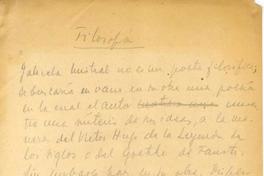 Filosofía
Gabriela Mistral no es un poeta filosófico,
se buscaría en vano en su obra una poesía
en la cual el autor
una materia de ideas, a la ma-
nera del Victor Hugo de la Leyenda de
los Siglos o del Goethe de Fausto.
Sin embargo por su obra